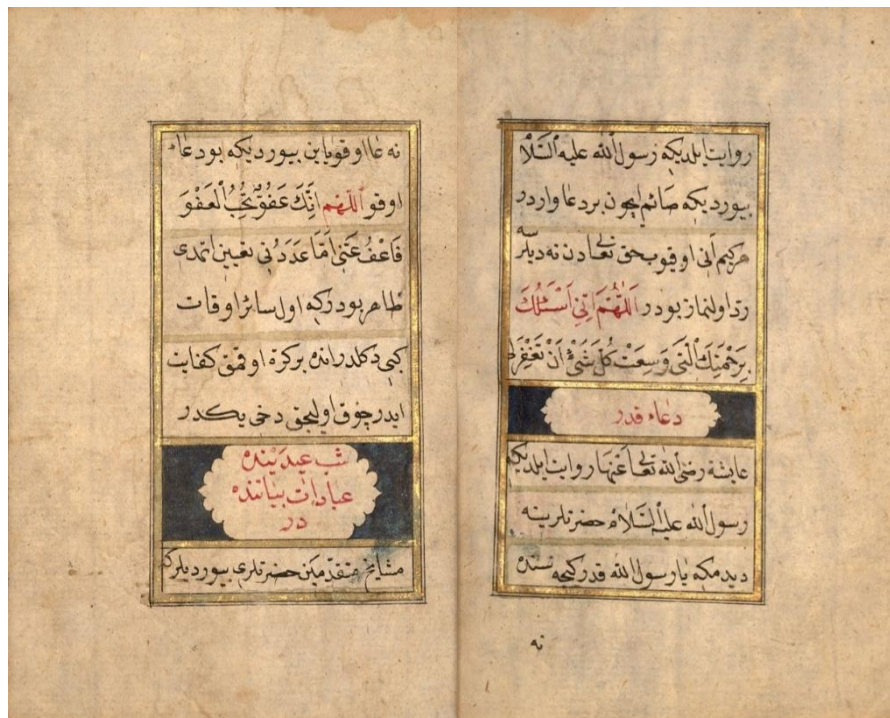 روایت ایلدیکه رسول الله علیه السلا
بیوردیکه صائم ایچون بر دعا واردر
هرکیم آنی اوقویوب حق تعالی دن نه دیلرسه
رد اولنماز بودر اَللّٰهُمَّ اِنّٖى اَسْئَلُكَ
بِرَحْمَتِكَ الَّتٖى وَسِعَتْ كُلَّ شَىْءٍ اَنْ تَغْفِرَ لٖى
دعاء قدر
عایشة رضی الله تعالی عنها روایت ایلدیکه
رسول الله علیه السلام حضرتلرینه
دیدمکه یا رسول الله قدر کیجه سنده
نه
نه دعا اوقویاین بیوردیکه بو دعاء
اوقو اَللّٰهُمَّ اِنَّكَ عَفُوٌّ تُحِبُّ الْعَفْوَ
فَاعْفُ عَنّٖى اما عددنی تعیین اتمدی
ظاهر بودرکه اول سائر اوقات
کبی دکلدر انده بر کره اوقمق کفایت
ایدر چوق اولیجق دخی یکدر
شب عیدینده
عبادات بیاننده
در
مشایخ متقدمین حضرتلری بیوردیلرکه